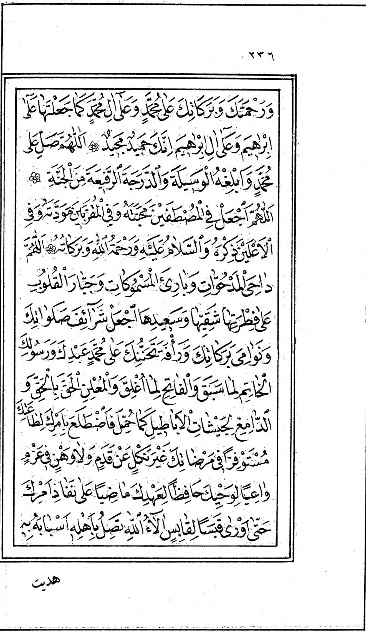 ٢٣٦
وَرَحْمَتَكَ وَبَرَكَاتِكَ عَلٰى مُحَمَّدٍ وَعَلٰى اٰلِ مُحَمَّدٍ كَمَا جَعَلْتَهَا عَلٰى
اِبْرٰهِيْمَ وَعَلٰى اٰلِ اِبْرٰهِيْمَ اِنَّكَ حَمِيْدٌ مَجِيْدٌ اَللّٰهُمَّ صَلِّ عَلٰى
مُحَمَّدٍ وَاَبْلِغْهُ الْوَسِيْلَةَ وَالدَّرَجَةَ الرَّفِيْعَةَ مِنَ الْجَنَّةِ
اَللّٰهُمَّ اجْعَلْ فِي الْمُصْطَفَيْنَ مَحَبَّتَهُ وَفِي الْمُقَرَّبِيْنَ مَوَدَّتَهُ وَفِي
الْاَعْلَيْنَ ذِكْرَهُ وَالسَّلَامُ عَلَيْهِ وَرَحْمَةُ اللّٰهِ وَبَرَكَاتُهُ اَللّٰهُمَّ
دَاحِيَ الْمَدْحُوَّاتِ وَبَارِئَ الْمَسْمُوْكَاتِ وَجَبَّارَ الْقُلُوْبِ
عَلٰى فِطْرَتِهَا شَقِيِّهَا وَسَعِيْدِهَا اجْعَلْ شَرَائِفَ صَلَوَاتِكَ
وَنَوَامِيَ بَرَكَاتِكَ وَرَأْفَةَ تَحَنُّنِكَ عَلٰى مُحَمَّدٍ عَبْدِكَ وَرَسُوْلِكَ
الْخَاتِمِ لِمَا سَبَقَ وَالْفَاتِحِ لِمَا اُغْلِقَ وَالْمُعْلِنِ الْحَقَّ بِالْحَقِّ وَ
الدَّامِغِ لِجَيْشَاتِ الْاَبَاطِيْلِ كَمَا حُمِّلَ فَاضْطَلَعَ بِاَمْرِكَ لِطَاعَتِكَ
مُسْتَوْفِزًا فِيْ مَرْضَاتِكَ غَيْرَ نَكِلٍ عَنْ قَدَمٍ وَلَا وَهْنٍ فِيْ عَزْمٍ
وَاعِيًا لِوَحْيِكَ حَافِظًا لِعَهْدِكَ مَاضِيًا عَلٰى نَفَاذِ اَمْرِكَ
حَتّٰى اَوْرٰى قَبَسًا لِقَابِسٍ اٰلَاءُ اللّٰهِ تَصِلُ بِاَهْلِهِ اَسْبَابَهُ بِهِ
هديت